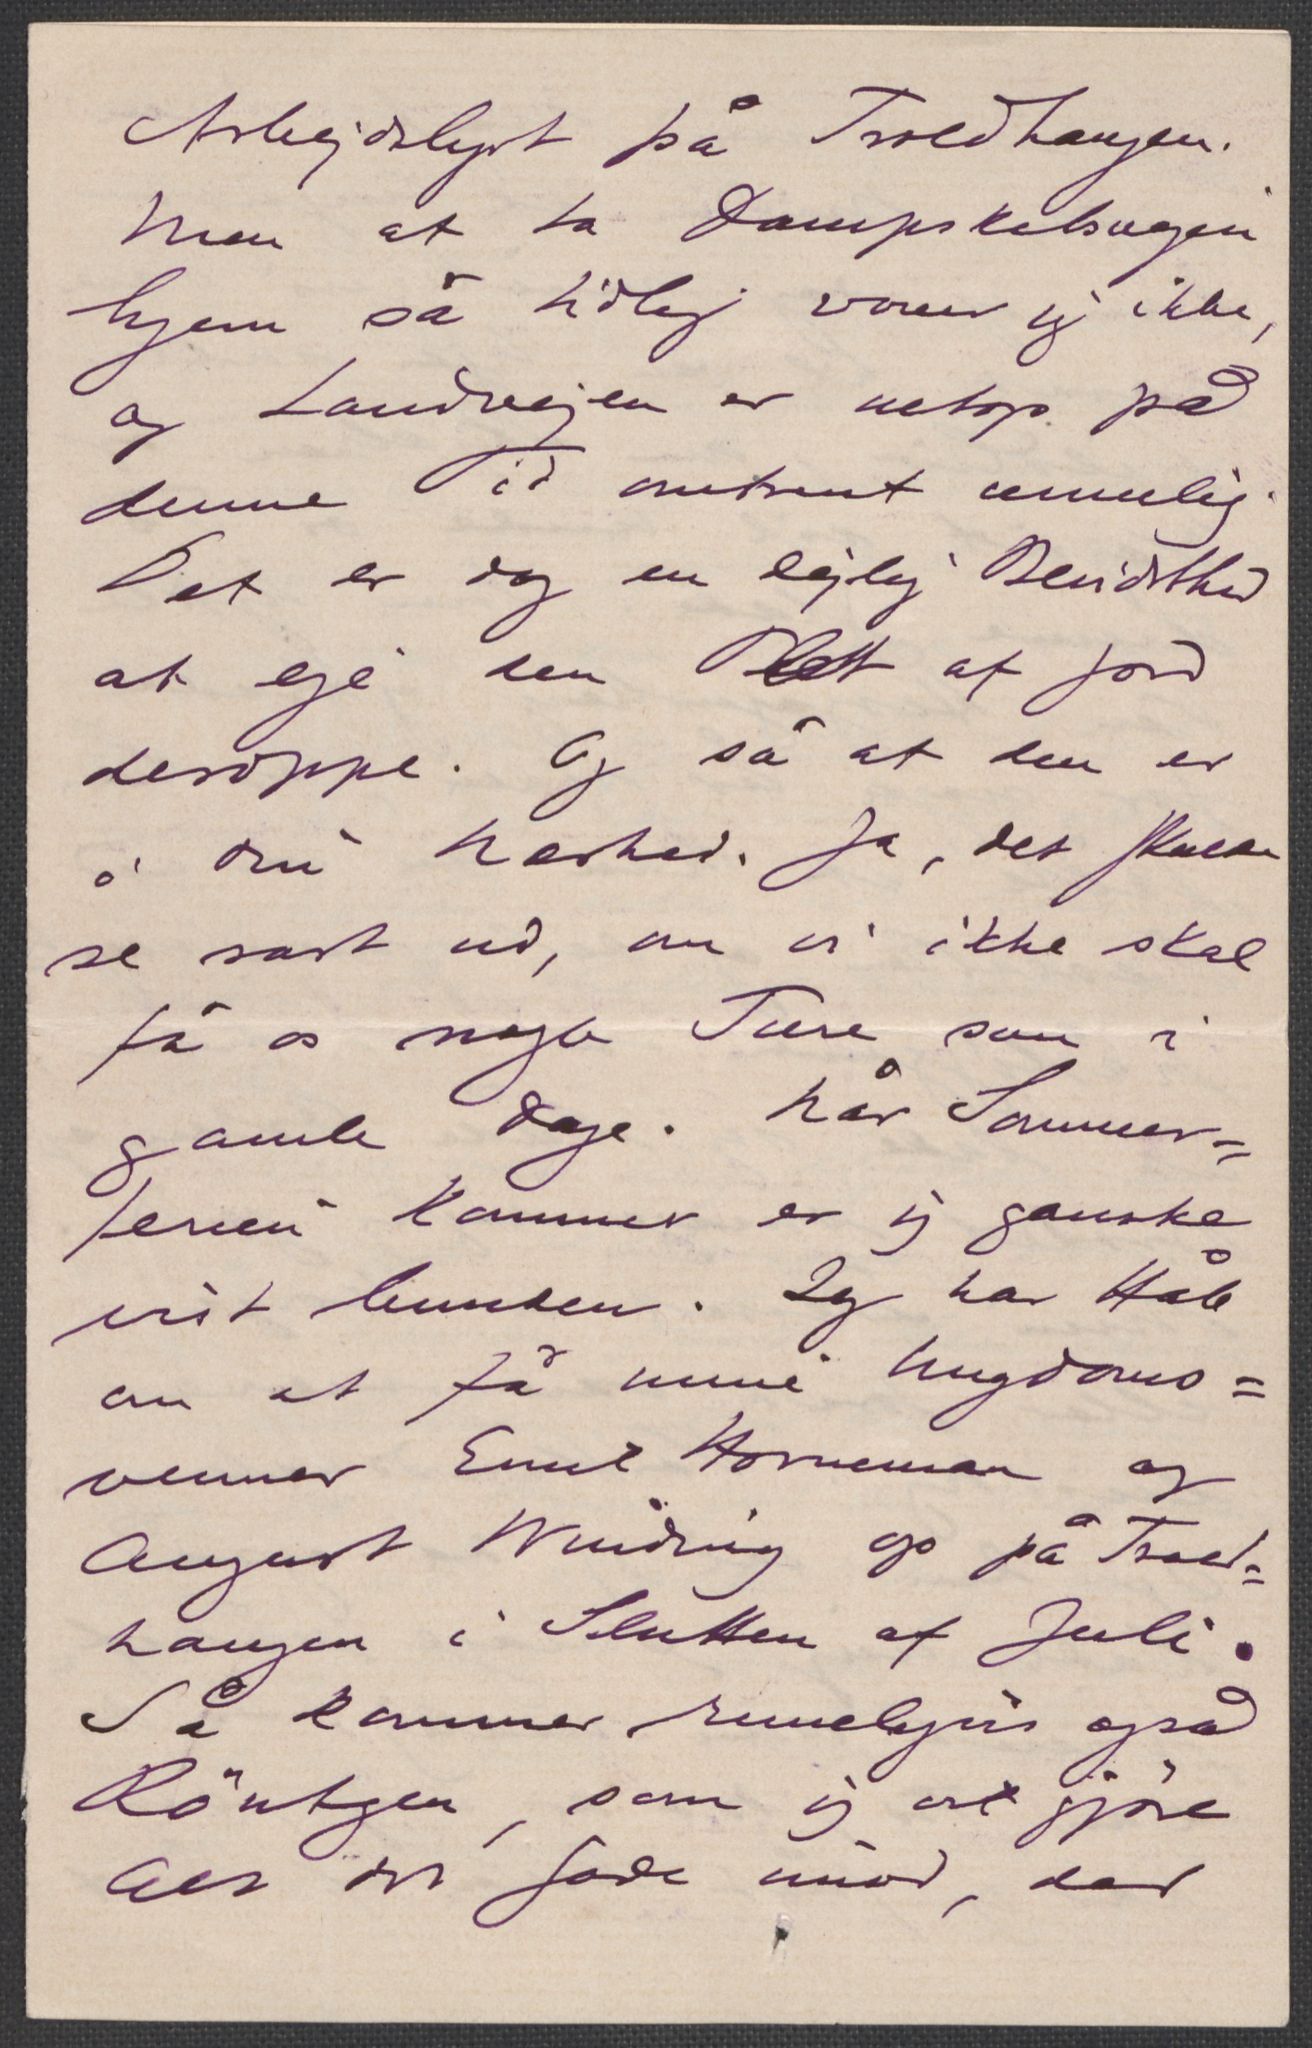 Arbejdslyst på Troldhaugen.
Men at ta Dampskibsvejen
hjem så tidlig vover jeg ikke,
og Landvejen er netop på
denne Tid omtrent umulig.
Det er dog en dejlig Bevidsthed
at eje den Plett af Jord
deroppe. Og så at den er
i din Nærhed. Ja, det skulde
se sort ud, om vi ikke skal
få os nogle Ture som i
gamle Dage. Når Sommer=
ferien kommer er jeg ganske
vist bunden. Jeg har Håb
om at få mine Ungdoms=
venner Emil Horneman og
August Winding op på Trold=
haugen i Slutten af Juli.
Så kommer rimeligvis også
Röntgen, som jeg vil gjöre
alt det gode imod, der